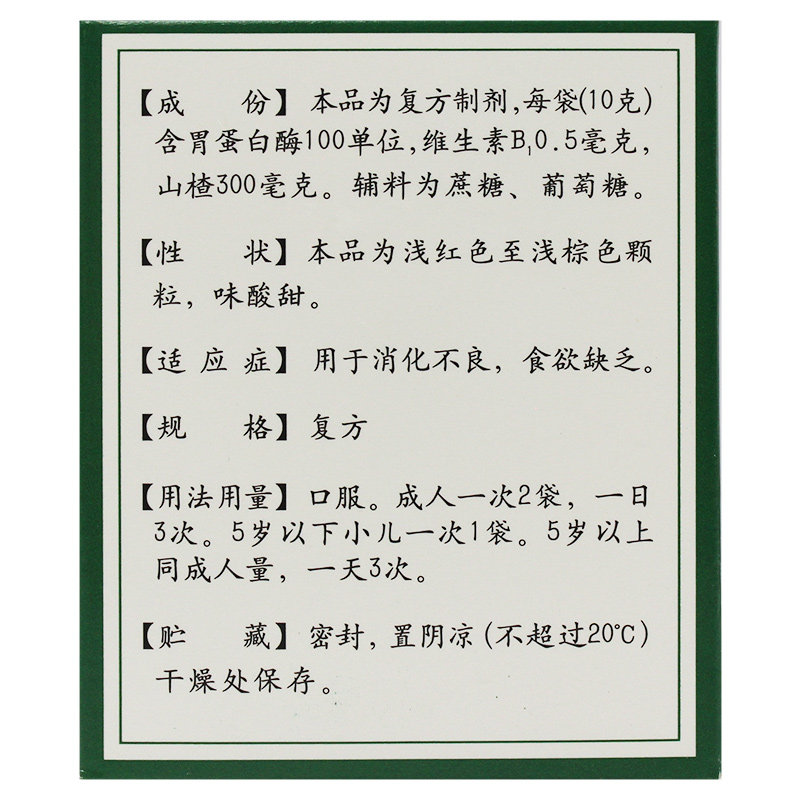 【成 份】本品为复方制剂,每袋(10克)
含胃蛋白酶100单位,维生素B₁0.5毫克,
山楂300毫克。辅料为蔗糖、葡萄糖。
【性 状】本品为浅红色至浅棕色颗
粒，味酸甜。
【适 应 症】用于消化不良，食欲缺乏。
【规 格】复方
【用法用量】口服。成人一次2袋，一日
3次。5岁以下小儿一次1袋。5岁以上
同成人量，一天3次。
【贮 藏】密封,置阴凉(不超过20℃)
干燥处保存。